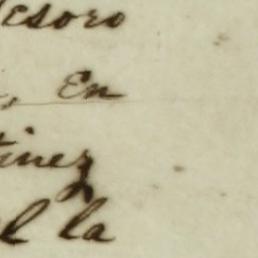 esoro
, En
tinez
el la